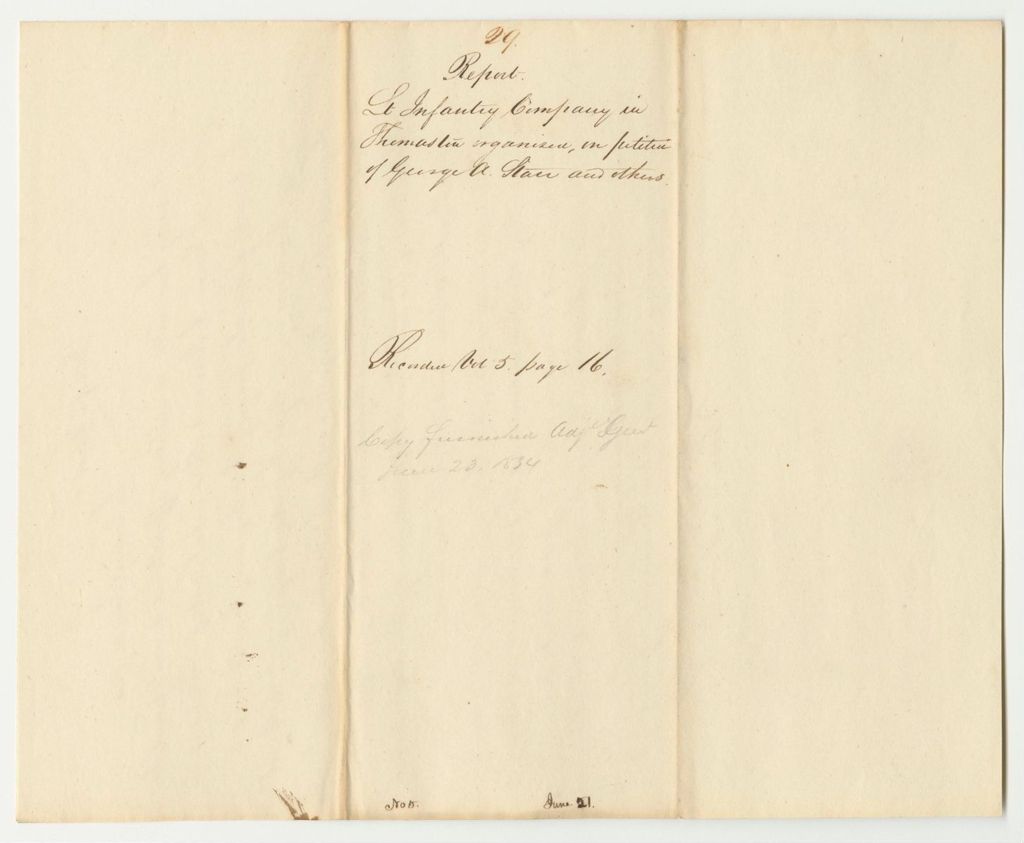 29.
Report.
Lt Infantry Company in
Thomaston organized, on petition
of George A. Starr and others.
Recorded Vol 5. page 16.
Copy furnished Adjt Genl
June 23. 1834
No 5. June 21.